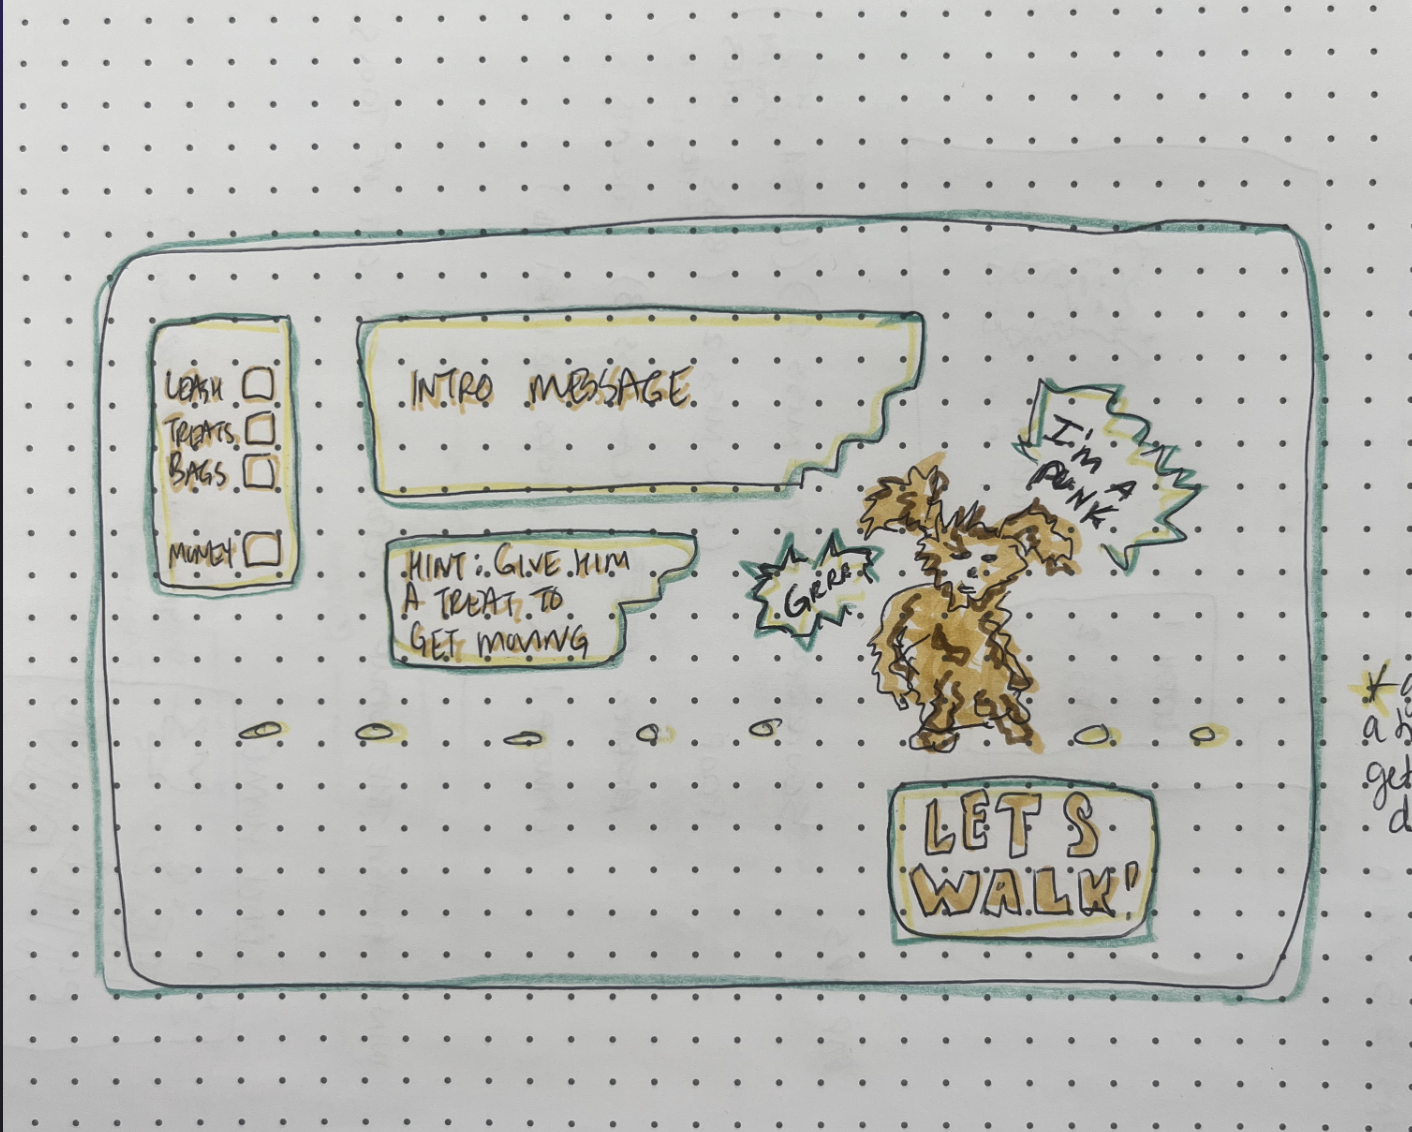 LEASH
TREATS
BAGS
MONEY
INTRO MESSAGE
HINT: GIVE HIM
A TREAT TO
GET MOVING
GRRR
I'M
A
PUNK.
LET'S
WALK!
a
get
d